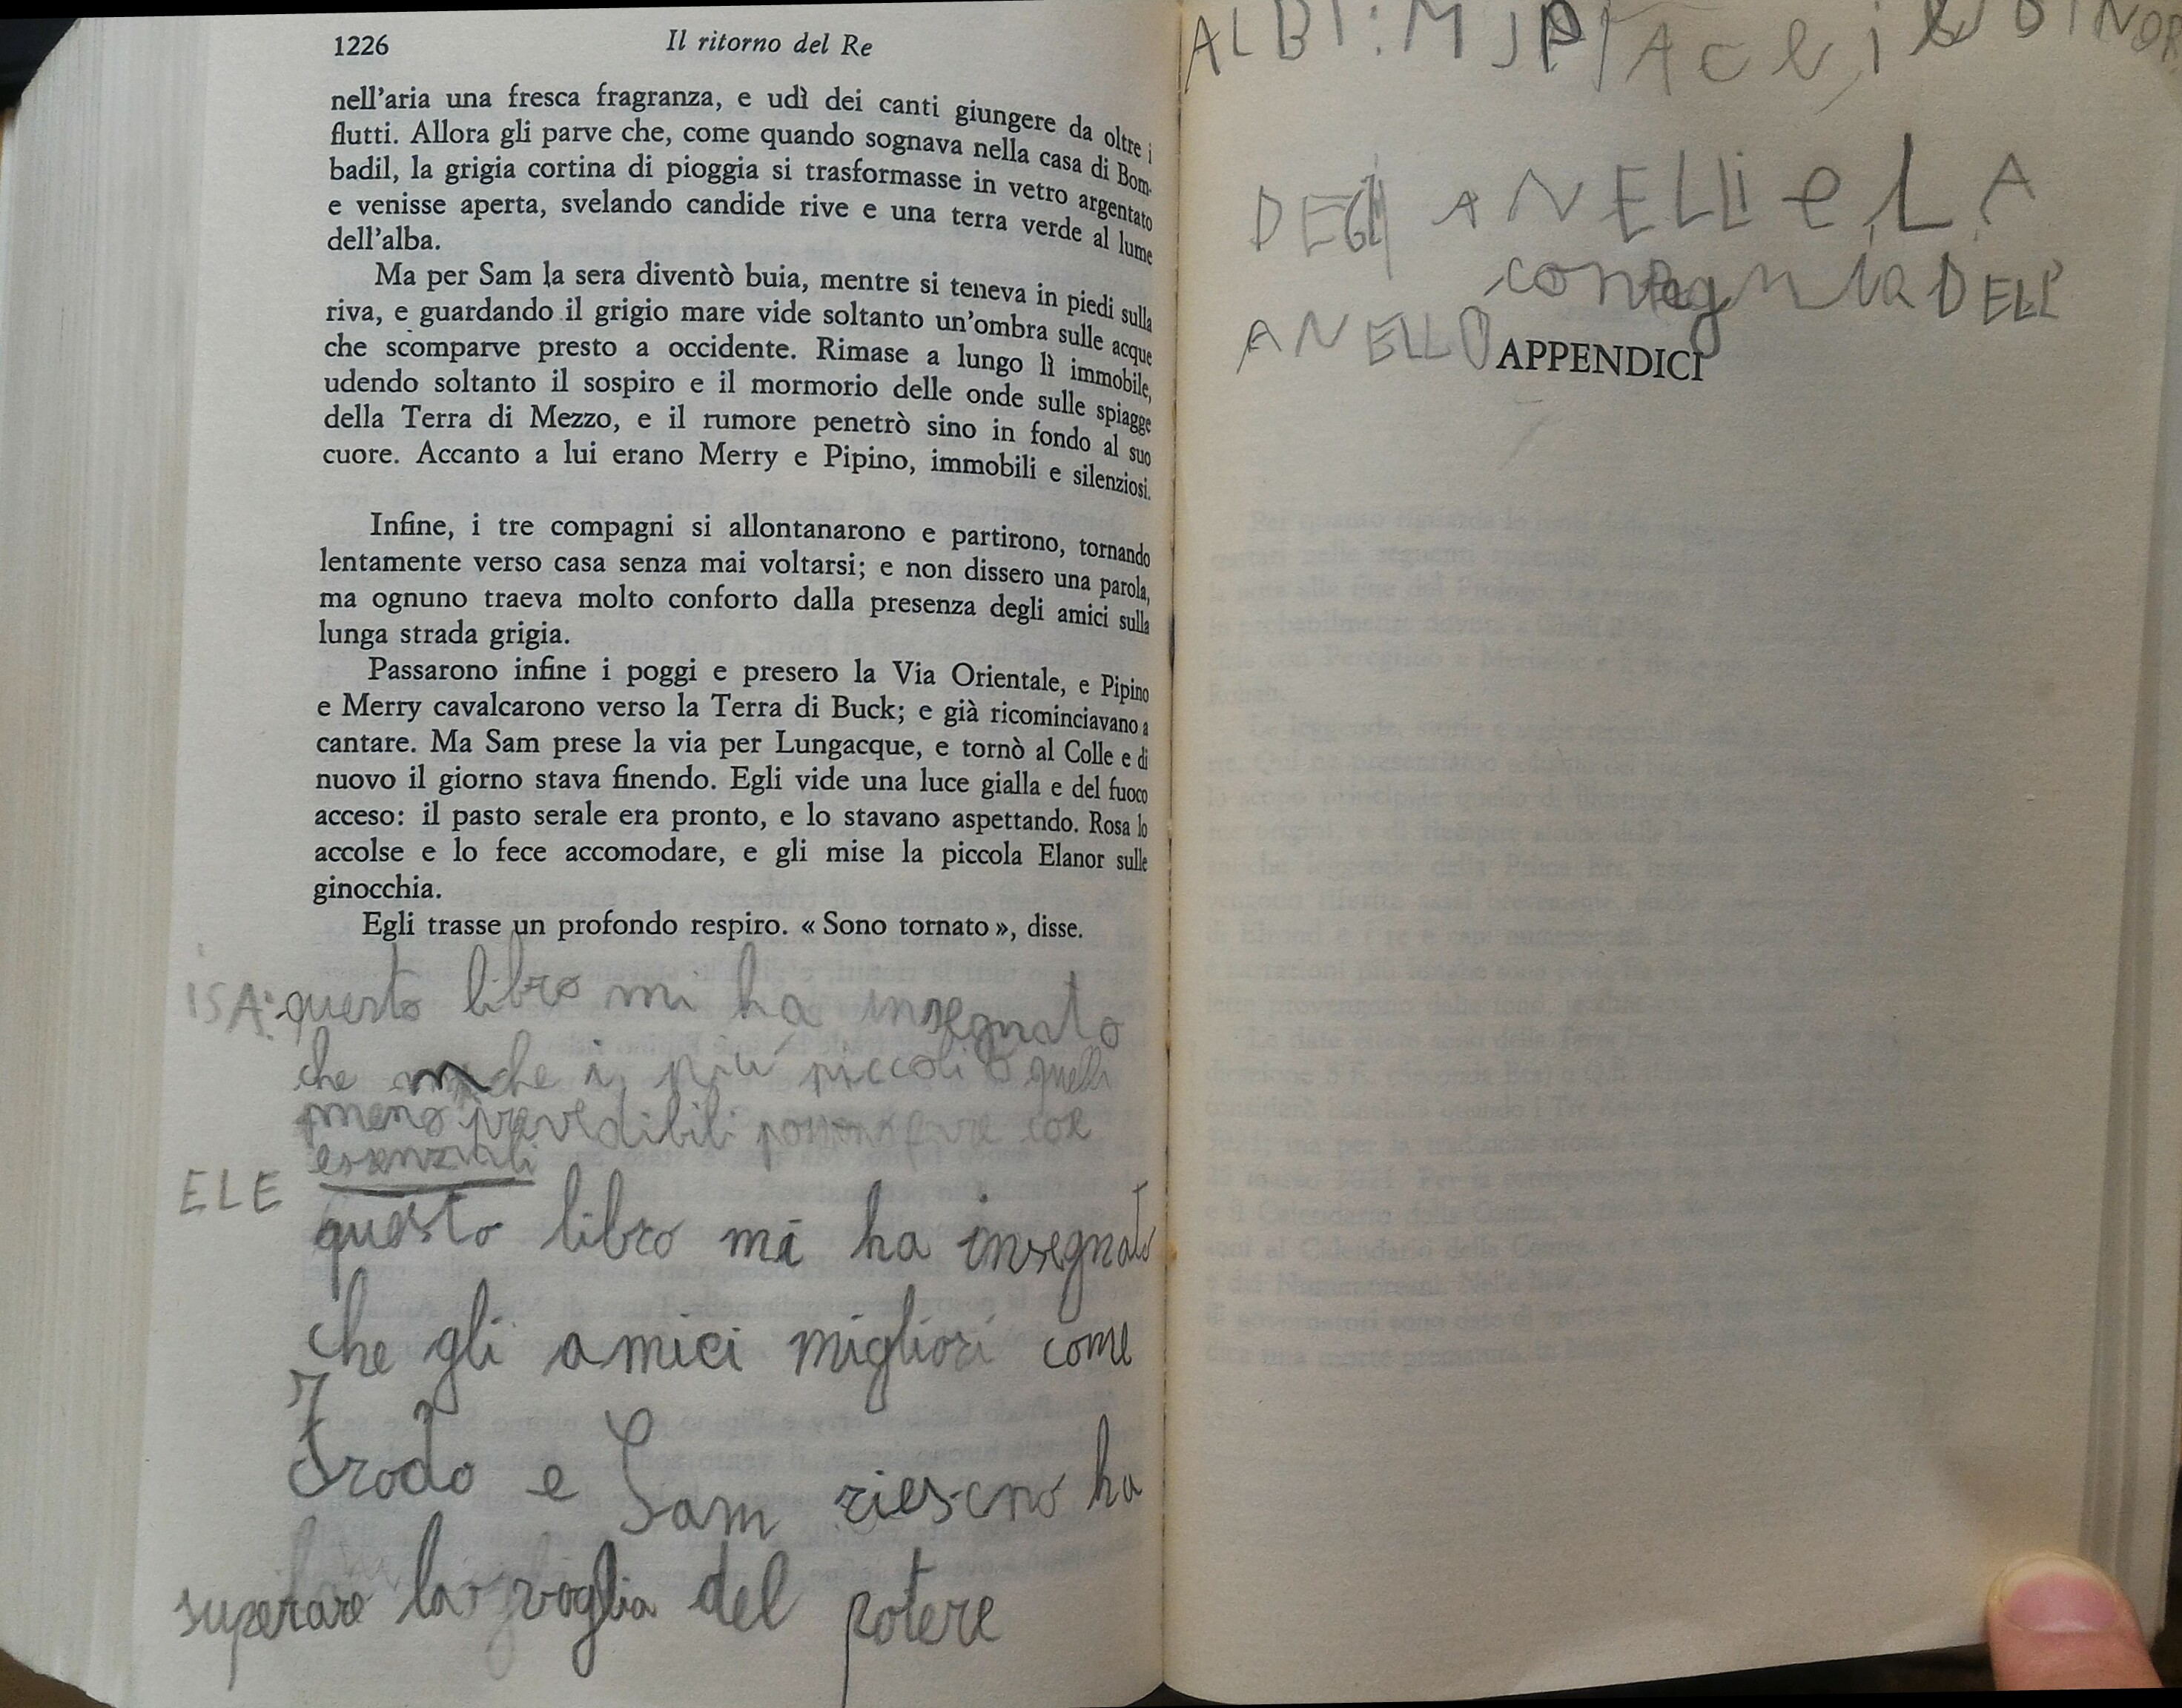 1226
Il ritorno del Re
nell'aria una fresca fragranza, e udì dei canti giungere da oltre i
flutti. Allora gli parve che, come quando sognava nella casa di Bom-
badil, la grigia cortina di pioggia si trasformasse in vetro argentato
e venisse aperta, svelando candide rive e una terra verde al lume
dell'alba.
Ma per Sam la sera diventò buia, mentre si teneva in piedi sulla
riva, e guardando il grigio mare vide soltanto un'ombra sulle acque
che scomparve presto a occidente. Rimase a lungo lì immobile,
udendo soltanto il sospiro e il mormorio delle onde sulle spiagge
della Terra di Mezzo, e il rumore penetrò sino in fondo al suo
cuore. Accanto a lui erano Merry e Pipino, immobili e silenziosi.
Infine, i tre compagni si allontanarono e partirono, tornando
lentamente verso casa senza mai voltarsi; e non dissero una parola,
ma ognuno traeva molto conforto dalla presenza degli amici sulla
lunga strada grigia.
Passarono infine i poggi e presero la Via Orientale, e Pipino
e Merry cavalcarono verso la Terra di Buck; e già ricominciavano a
cantare. Ma Sam prese la via per Lungacque, e tornò al Colle e di
nuovo il giorno stava finendo. Egli vide una luce gialla e del fuoco
acceso: il pasto serale era pronto, e lo stavano aspettando. Rosa lo
accolse e lo fece accomodare, e gli mise la piccola Elanor sulle
ginocchia.
Egli trasse un profondo respiro. «Sono tornato», disse.
ISA: questo libro mi ha insegnato
che anche i più piccoli o quelli
meno prevedibili possono fare cose
essenziali
ELE
questo libro mi ha insegnato
che gli amici migliori come
Frodo e Sam riescno ha
superare la voglia del potere
ALBI: MI PIACe i
DEGli ANELLi e LA
DELL'
ANELLO
APPENDICI